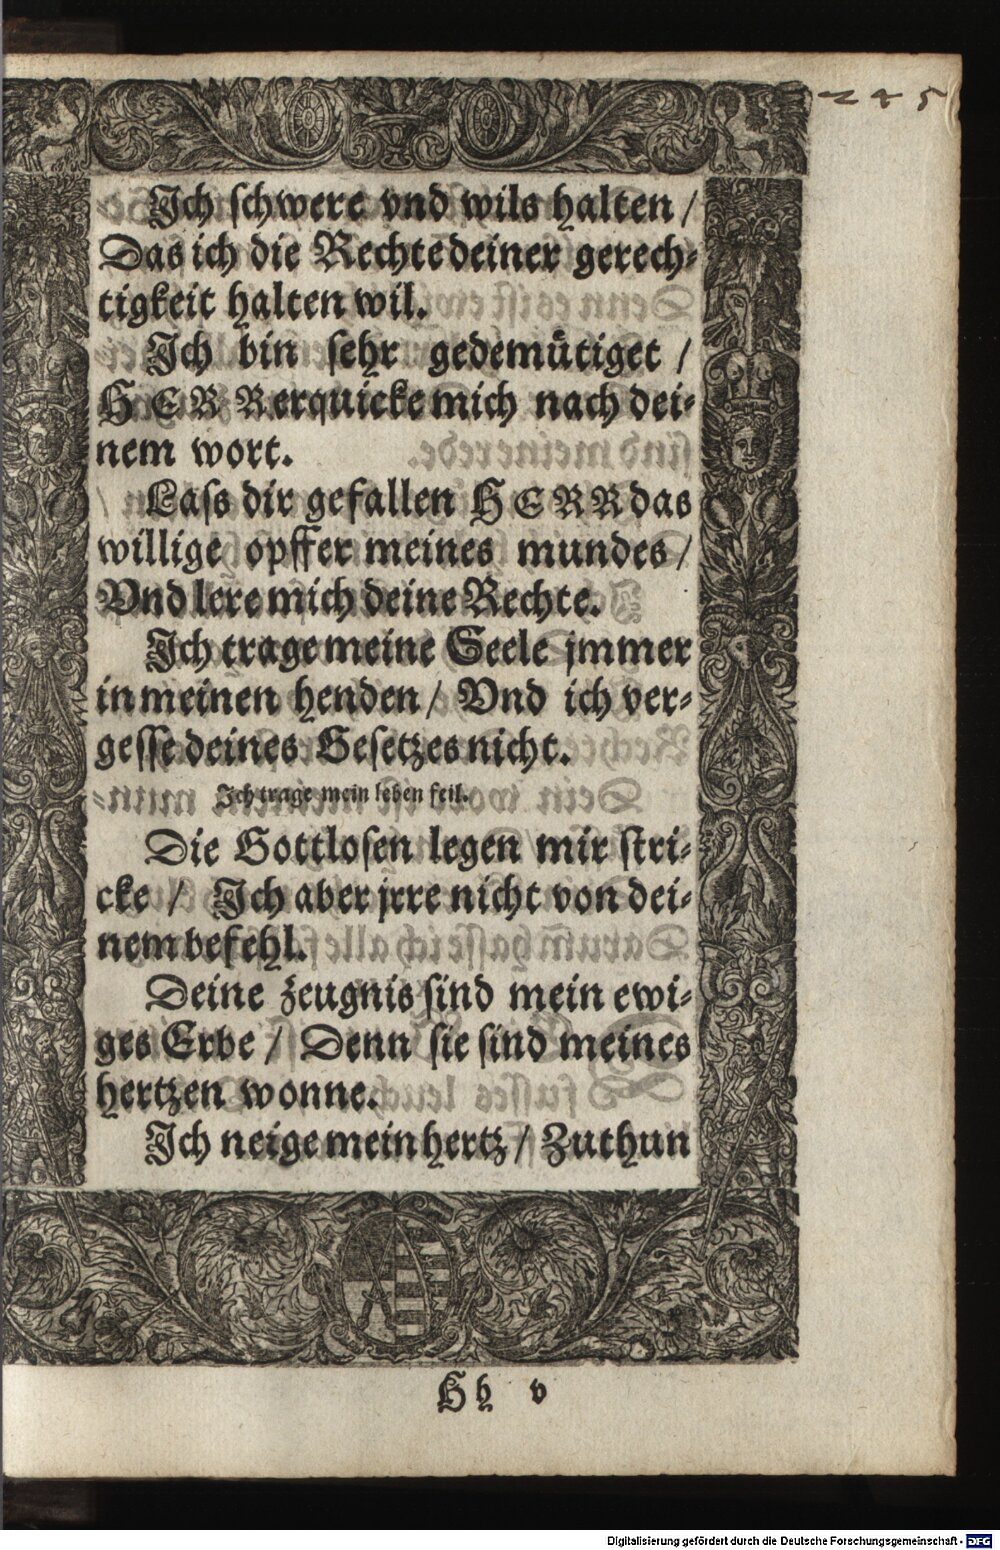 245
Ich schwere vnd wils halten /
Das ich die Rechte deiner gerech-
tigkeit halten wil.
Ich bin sehr gedemütiget /
HERR erquicke mich nach dei-
nem wort.
Lass dir gefallen HERR das
willige opffer meines mundes /
Vnd lere mich deine Rechte.
Ich trage meine Seele jmmer
in meinen henden / Vnd ich ver-
gesse deines Gesetzes nicht.
Ich trage mein leben feil.
Die Gottlosen legen mir stri-
cke / Ich aber jrre nicht von dei-
nem befehl.
Deine zeugnis sind mein ewi-
ges Erbe / Denn sie sind meines
hertzen wonne.
Ich neige mein hertz / Zuthun
Hh v
Digitalisierung gefördert durch die Deutsche Forschungsgemeinschaft - DFG